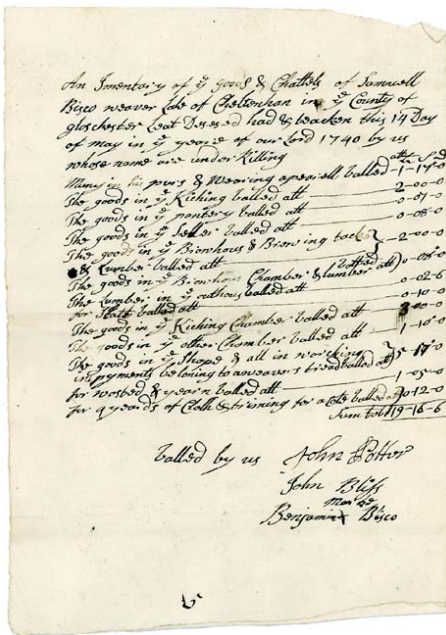 An Imentairy of ye goods & Chattels of Samuell
Bisco weaver Late of Cheltenham in ye County of
glochester Leat Desesed had & teacken this 14 Day
of may in ye yeare of our Lord 1740 by us
whose name are under Killing
Muny in his purs & Wearing aparell valled att 1-17-0
The goods in ye Kiching valled att 2-00-0
The goods in ye pantery valled att 0-07-0
The goods in ye Seller valled att 0-08-0
The goods in ye Brewhous & Brewing tacks
& Lumber valled att 2-00-0
The goods in ye Brewhous Chamber & lumber valled att 0-08-0
The Lumber in ye outhous valled att 0-02-6
for valled att 0-10-0
The goods in ye Kiching Chamber valled att 3-00-0
The goods in ye other Chamber valled att 1-10-0
The goods in ye Shope & all in worcking
impyments beloning to a weavers tread valled att 5-17-0
for wosted & yearn valled att 1-05-0
for 9 yeards of Cloth & triming for a Cote valled att 0-12-0
Sum totl 19-16-6
valled by us John Potter
John Bliss
Benjamin Bisco